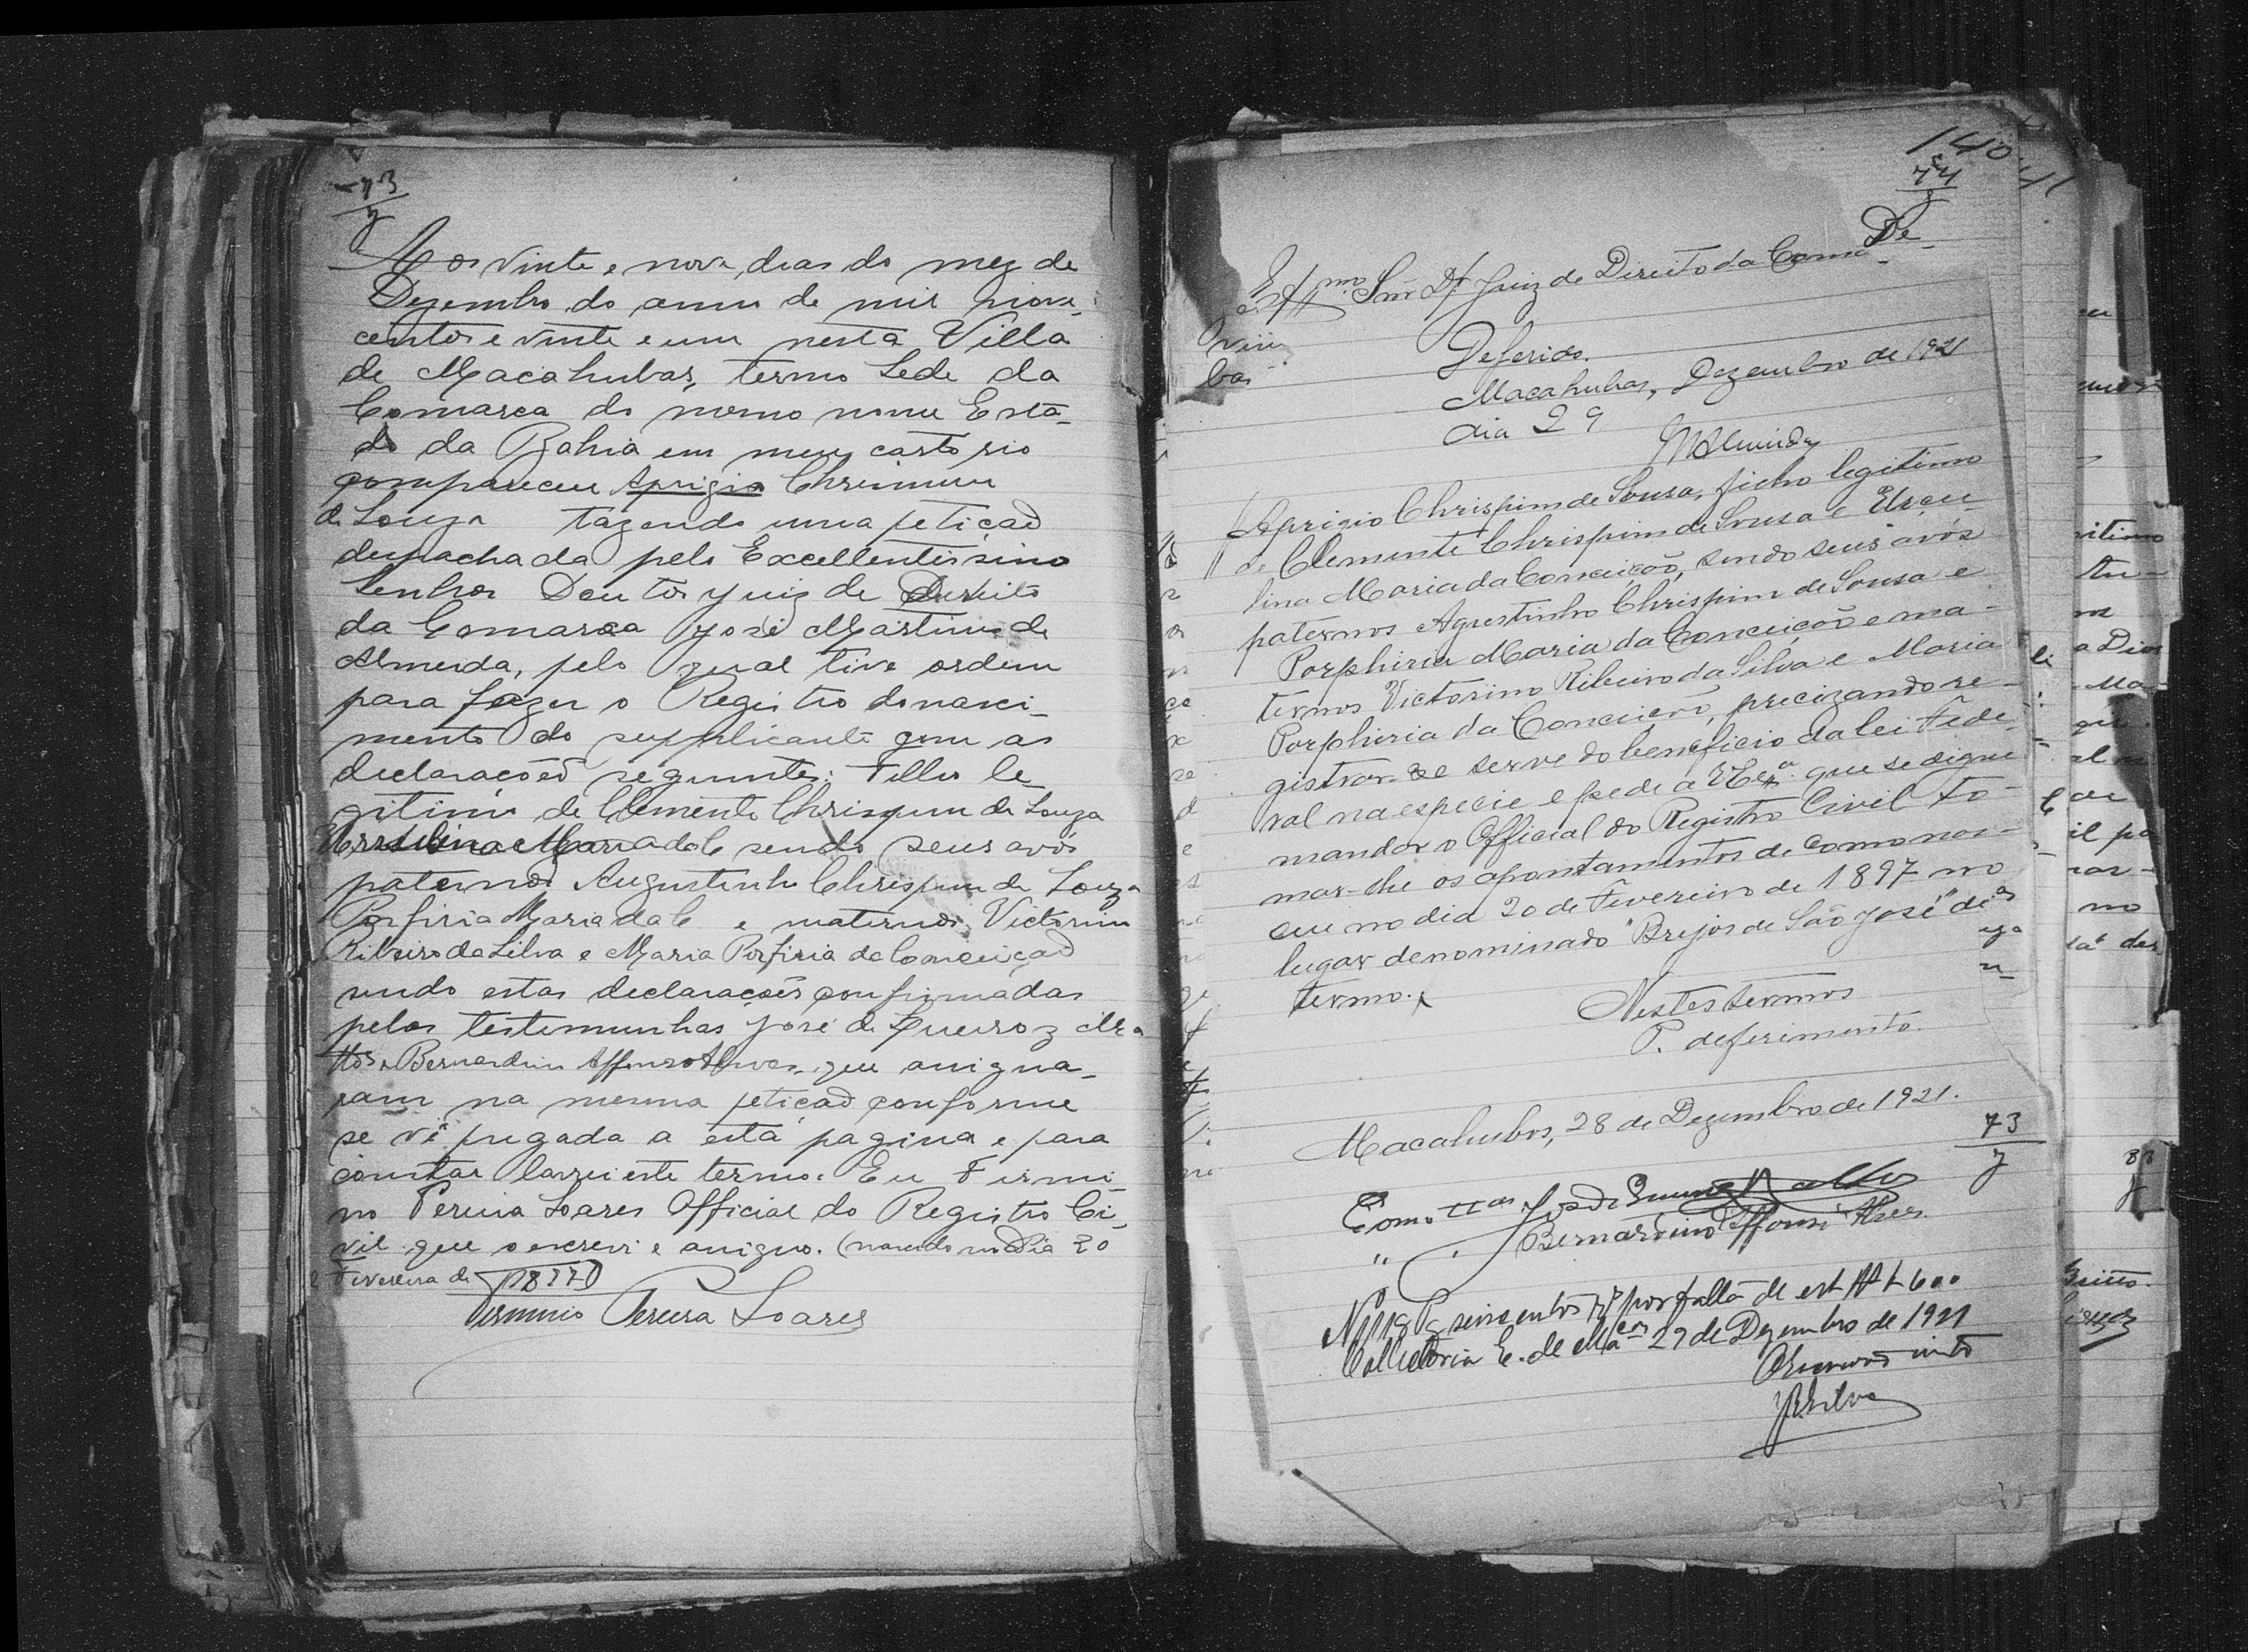 73
Aos vinte e nove dias do mez de
Dezembro do anno de mil nove
centos e vinte e um nesta Villa
de Macahubas, termo Sede da
Comarca do mesmo nome Esta-
do da Bahia em meu cartorio
compareceu Aprigio Chrispim
de Souza trazendo uma petição
despachada pelo Excellentissimo
Senhor Doutor Juiz de Direito
da Comarca José Martins de
Almeida, pelo qual tive ordem
para fazer o Registro de nasci-
mento do supplicante com as
declarações seguintes: Filho le-
gitimo de Clemente Chrispim de Souza
Ursulina Maria da C sendo seus avós
paternos Augustinho Chrispim de Souza
Porfiria Maria da C e maternos Victorino
Ribeiro da Silva e Maria Porfiria da Conceiçaõ
sendo estas declarações confirmadas
pelas testemunhas José de Queiroz Ma
ttos e Bernardino Affonso Alves, que assigna-
ram na mesma petição conforme
se vê pregada a esta pagina e para
constar lavrei este termo. Eu Firmi-
no Pereira Soares Official do Registro Ci-
vil que o escrevi e assigno. (nascido no dia 20
Fevereiro de 1897)
Firmino Pereira Soares
140
74
De
Exmo Snr Dr Juiz de Direito da Coma-
Deferido.
Macahubas, Dezembro de 1921
dia 29
MAlmeida
Aprigio Chrispim de Sousa, ficho legitimo
de Clemente Chrispim de Sousa e Ursu-
lina Maria da Conceição, sendo seus avós
paternos Agustinho Chrispim de Sousa e
Porphiria Maria da Conceição e ma-
ternos Victorino Ribeiro da Silva e Maria
Porphiria da Conceição, precizando re-
gistrar-se serve do beneficio da lei Fede-
ral na especie e pede a V Exª que se digne
mandar o Official do Registro Civil to-
mar-lhe os apontamentos de como nas-
ceu no dia 20 de Fevereiro de 1897 no
lugar denominado "Brejos de São José" des
termo.
Nestes termos
P. deferimento.
Macahubas, 28 de Dezembro de 1921.
73
Como ttas José de Queiroz Mattos
" " Bernardino Affonso Alves.
Nº 118 Pg seiscentos rs por falta de est. Rs 600
Collectoria E. de Macas 29 de Dezembro de 1921
JRSilva